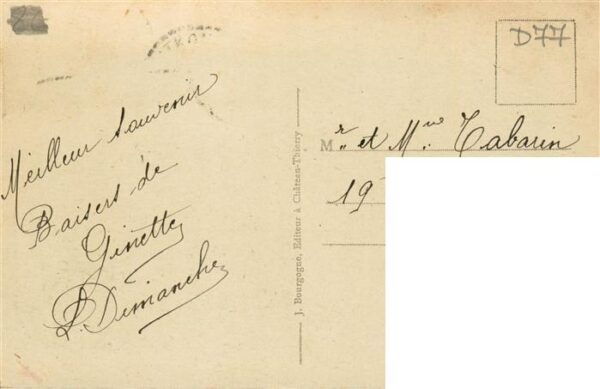 D77
Meilleur souvenir
Baisers de
Ginette
Dimanche
J. Bourgogne, Editeur à Château-Thierry
Mr. et Mme. Tabarin
19